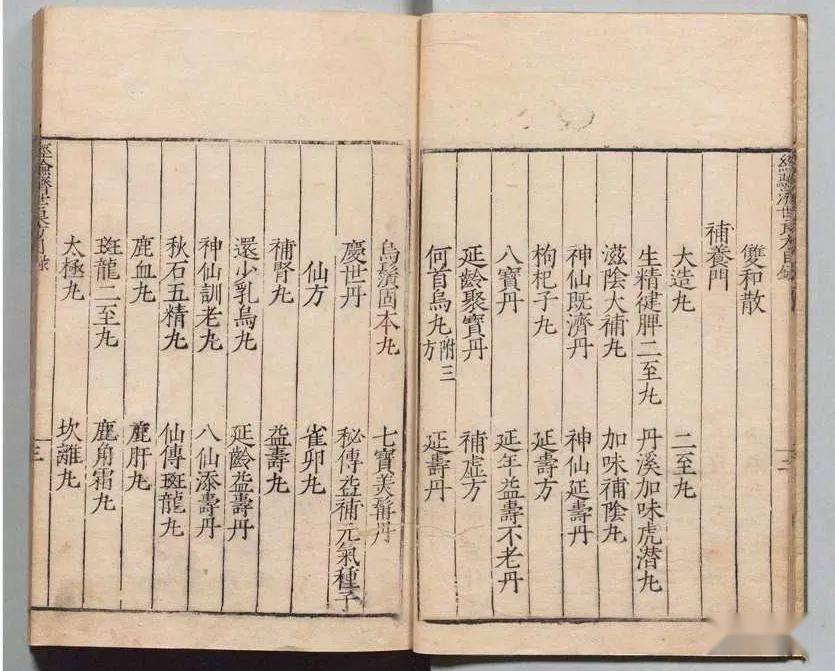 經驗濟世良方目錄
雙和散
補養門
大造丸 二至丸
生精健脾二至丸 丹溪加味虎潜丸
滋陰大補丸 加味補陰丸
神仙既濟丹 神仙延壽丹
枸杞子丸 延壽方
八寶丹 延年益壽不老丹
延齡聚寶丹 補虛方
何首烏丸附三方 延壽丹
烏鬚固本丸 七寶美髯丹
慶世丹 秘傳益補元氣種子
仙方 雀卵丸
補腎丸 益壽丸
還少乳烏丸 延齡益壽丹
神仙訓老丸 八仙添壽丹
秋石五精丸 仙傳斑龍丸
鹿血丸 鹿肝丸
斑龍二至丸 鹿角霜丸
太極丸 坎離丸
經驗濟世良方目錄 三